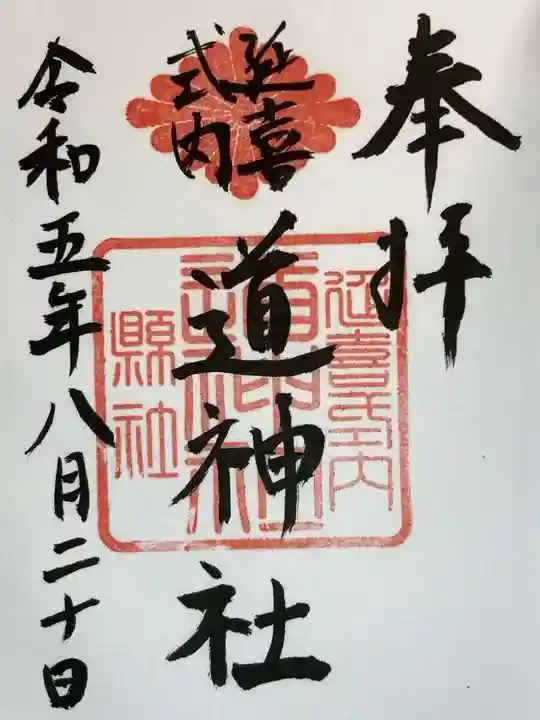 奉拝
延喜
式内
道神社
令和五年八月二十日
延喜式内
道神社
縣社